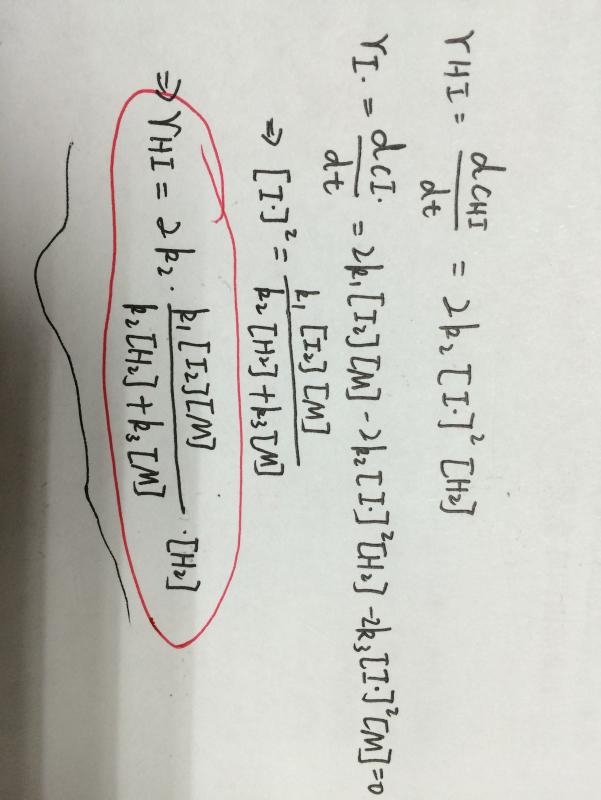 rHI = dCHI/dt = 2k₂[I·]²[H₂]
rI· = dCI·/dt = 2k₁[I₂][M] - 2k₂[I·]²[H₂] - 2k₃[I·]²[M] = 0
⇒ [I·]² = k₁[I₂][M] / k₂[H₂]+k₃[M]
⇒ rHI = 2k₂ · k₁[I₂][M] / k₂[H₂]+k₃[M] · [H₂]